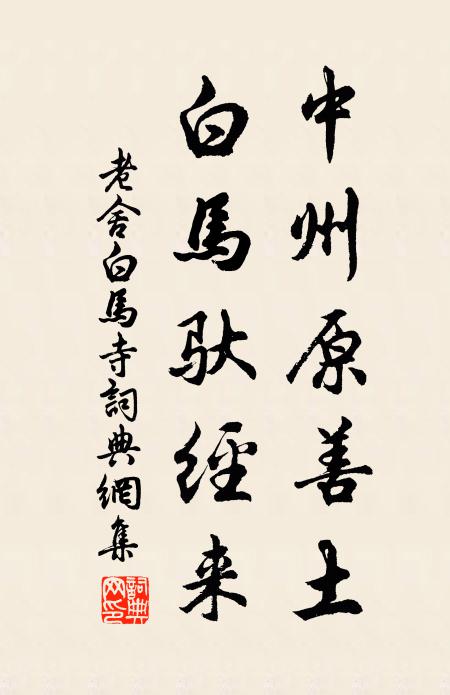 中州原善土
白馬馱經来
老舍白馬寺詞典網集
詞典网印